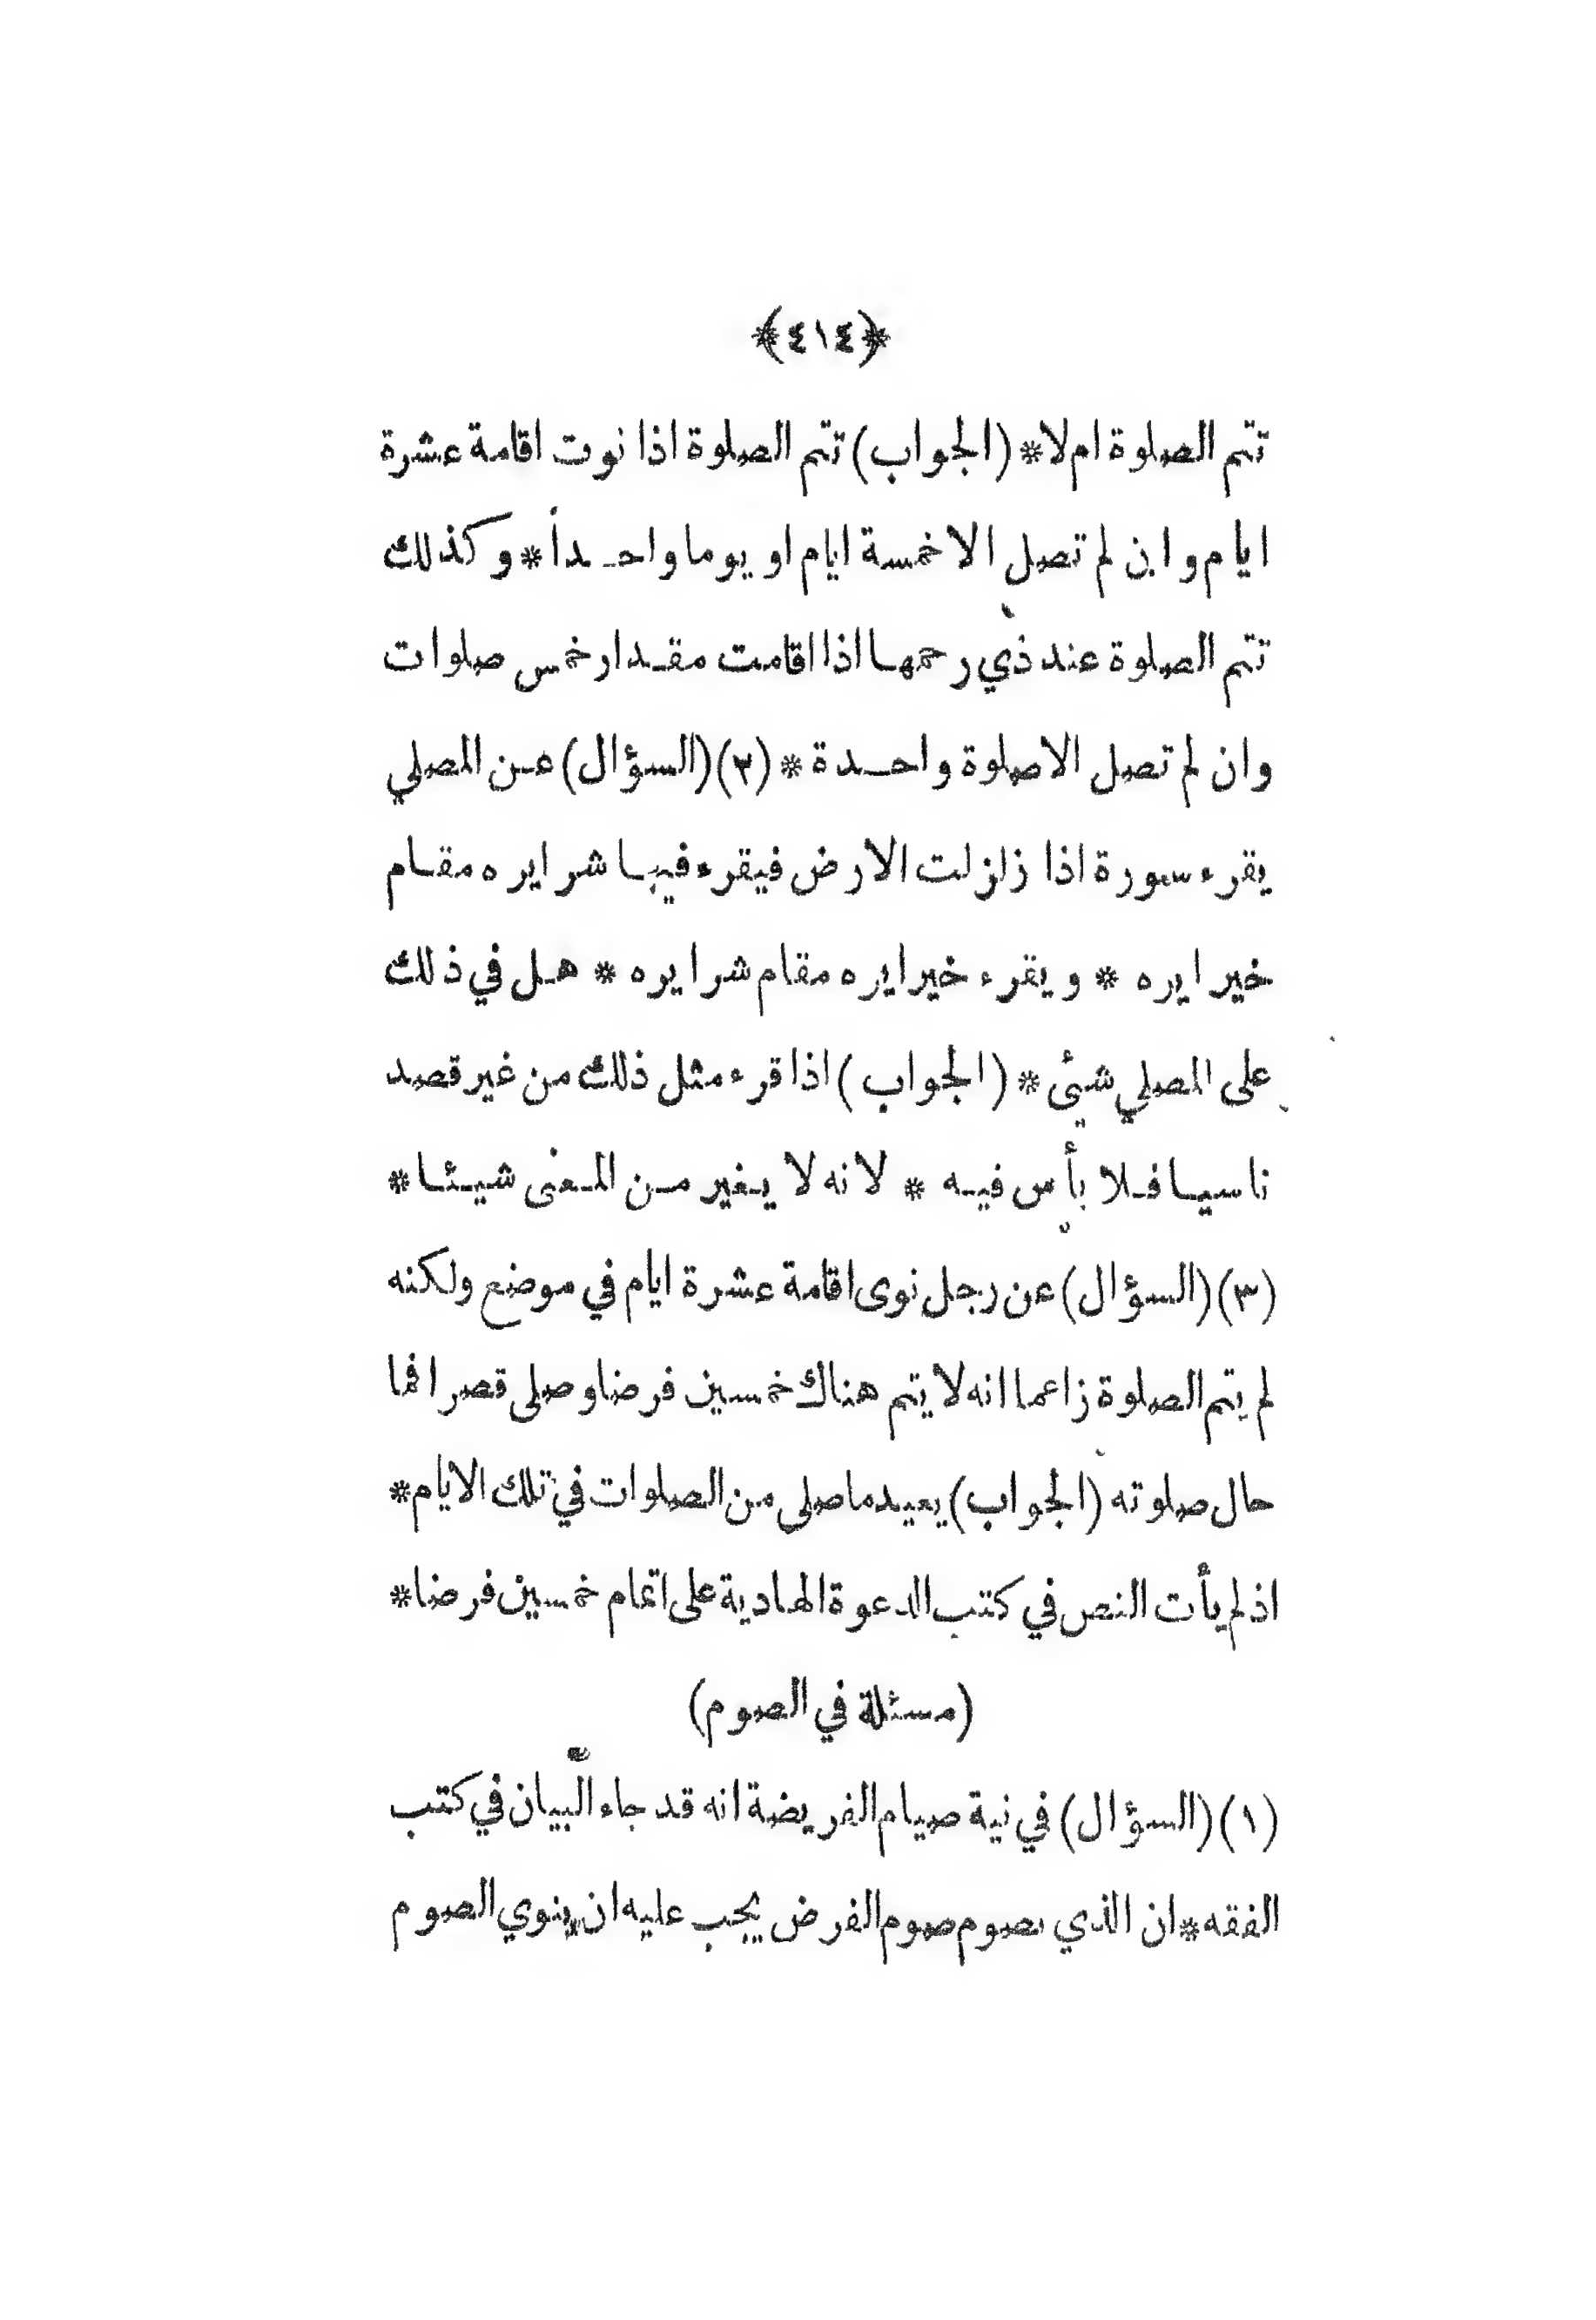 ﴿٤١٤﴾
تتم الصلوة ام لا * (الجواب) تتم الصلوة اذا نوت اقامة عشرة
ايام وان لم تصل الا خمسة ايام او يوما واحدأ * وكذلك
تتم الصلوة عند ذي رحمها اذا اقامت مقدار خمس صلوات
وان لم تصل الا صلوة واحدة * (٢) (السؤال) عن المصلي
يقرء سورة اذا زلزلت الارض فيقرء فيها شرايره مقام
خيرايره * ويقرء خيرايره مقام شرايره * هل في ذلك
على المصلي شيئ * (الجواب) اذا قرء مثل ذلك من غير قصد
ناسيا فلا بأس فيه * لانه لا يغير من المعنى شيئا *
(٣) (السؤال) عن رجل نوى اقامة عشرة ايام في موضع ولكنه
لم يتم الصلوة زاعما انه لا يتم هناك خمسين فرضا وصلى قصرا فما
حال صلوته (الجواب) يعيد ما صلى من الصلوات في تلك الايام *
اذ لم يأت النص في كتب الدعوة الهادية على اتمام خمسين فرضا *
(مسئلة في الصوم)
(١) (السؤال) في نية صيام الفريضة انه قد جاء البيان في كتب
الفقه * ان الذي يصوم صوم الفرض يجب عليه ان ينوي الصوم